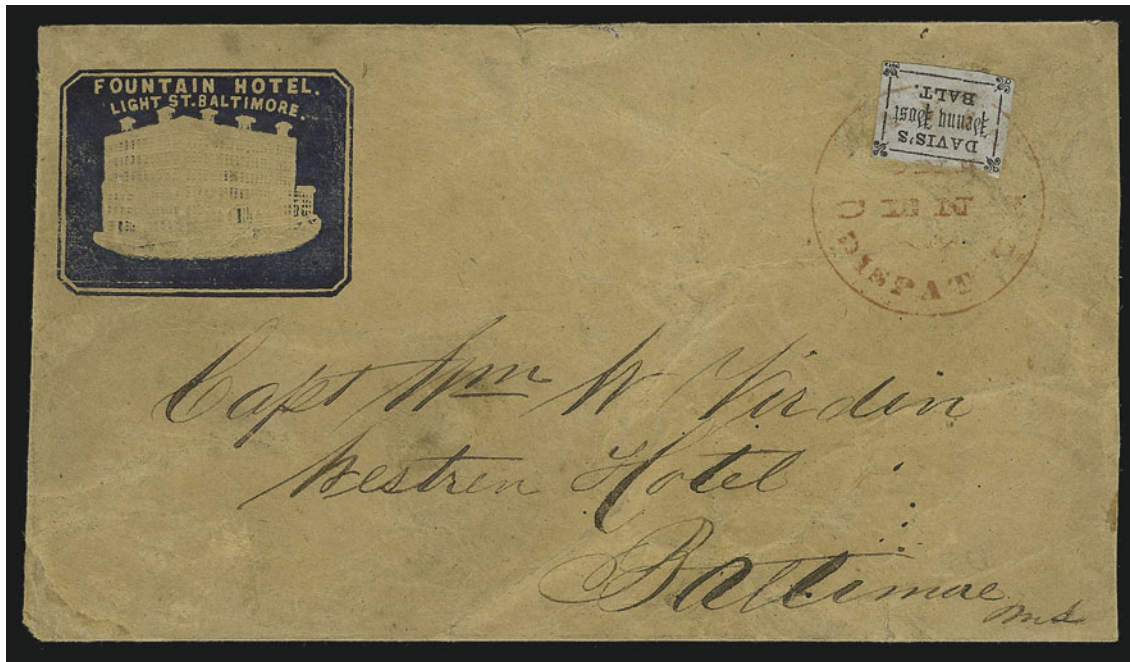 FOUNTAIN HOTEL.
LIGHT ST. BALTIMORE.
DAVIS'S
Penny Post
BALT.
DISPATC
Capt Wm W Virdin
Westren Hotel
Baltimore
Md